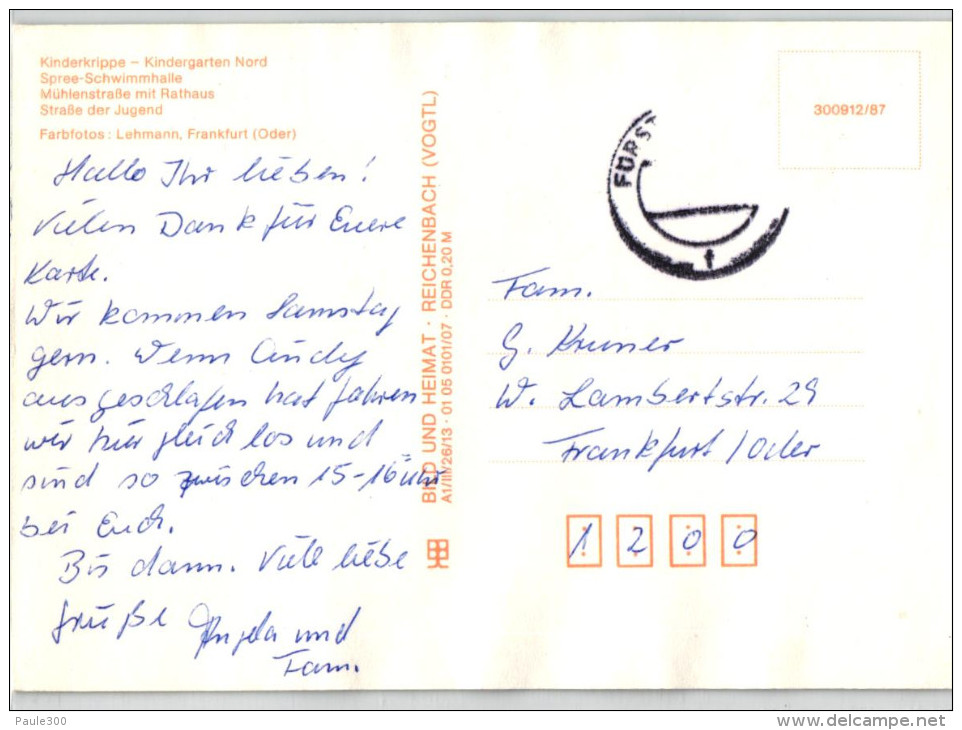 Kinderkrippe – Kindergarten Nord
Spree-Schwimmhalle
Mühlenstraße mit Rathaus
Straße der Jugend
Farbfotos: Lehmann, Frankfurt (Oder)
Hallo Ihr lieben!
Vielen Dank für Euere
Karte.
Wir kommen Samstag
gern. Wenn Andy
ausgeschlafen hat fahren
wir hier gleich los und
sind so zwischen 15-16 Uhr
bei Euch.
Bis dann. Viele liebe
Grüße Angela und
Fam.
BILD UND HEIMAT · REICHENBACH (VOGTL)
A1/III/26/13 · 01 05 0101/07 · DDR 0,20 M
300912/87
FÜRST
t
Fam.
G. Kruner
W. Lambertstr. 29
Frankfurt/Oder
1 2 0 0
Paule300
www.delcampe.net